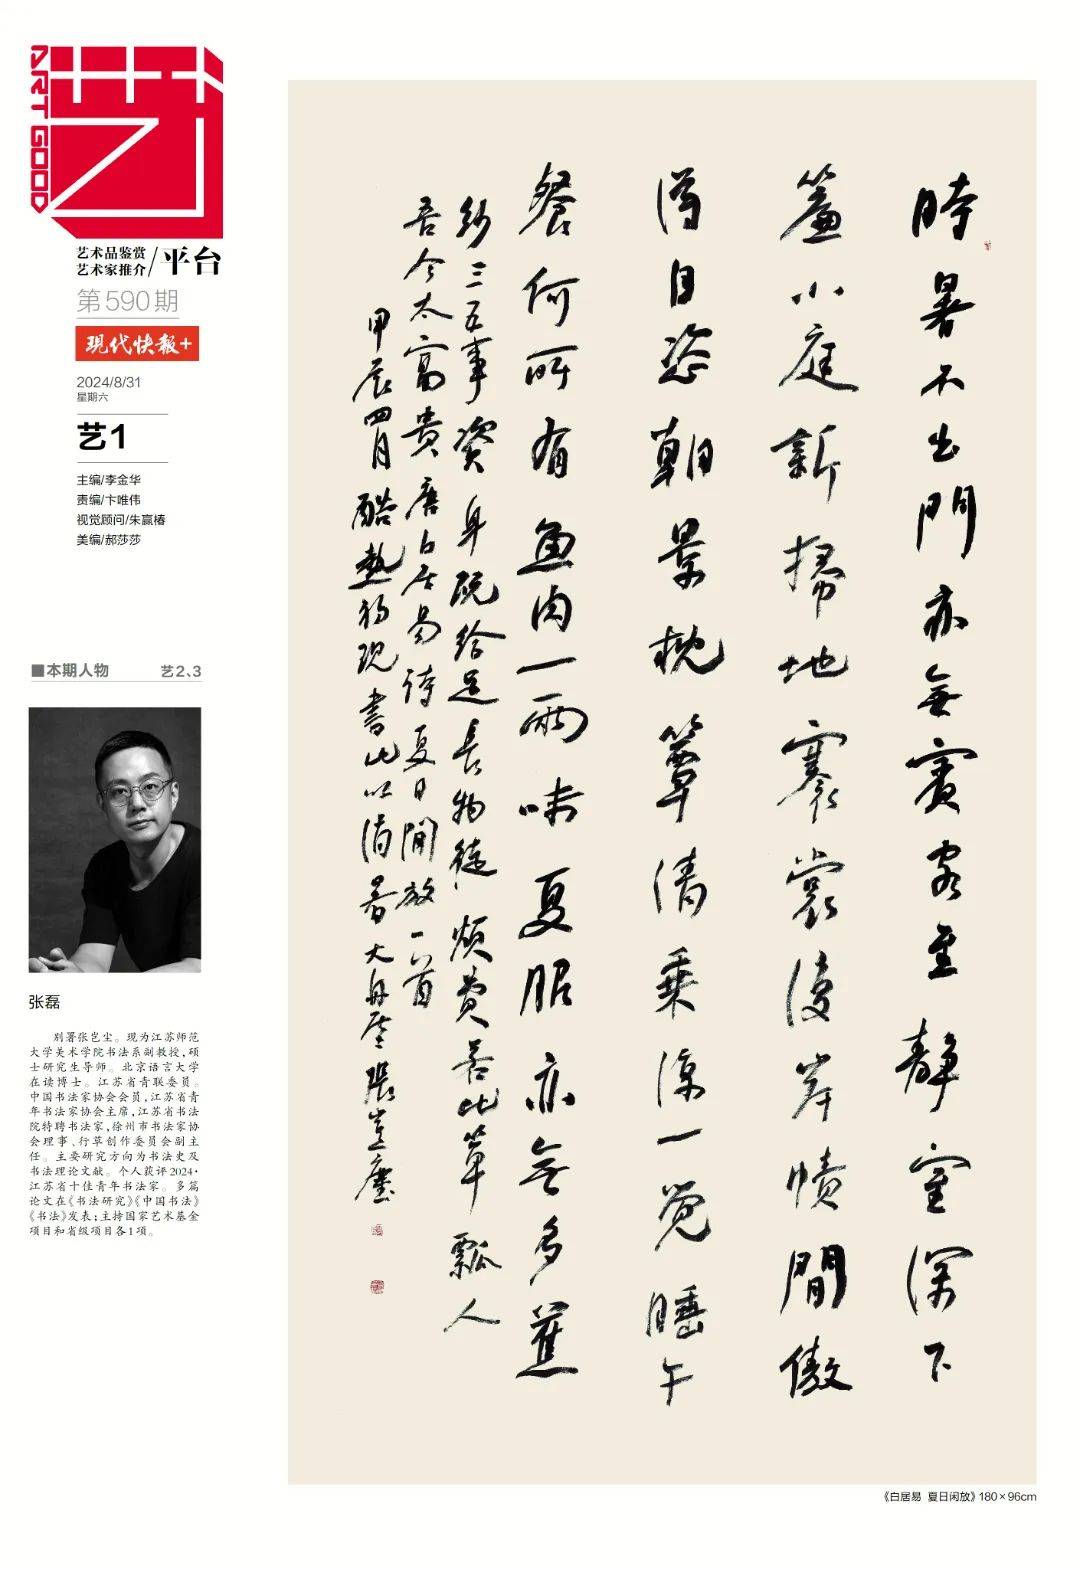 ART GOOD
艺
艺术品鉴赏
艺术家推介/平台
第590期
现代快報+
2024/8/31
星期六
艺1
主编/李金华
责编/卞唯伟
视觉顾问/朱赢椿
美编/郝莎莎
■本期人物 艺2、3
张磊
别署张岂尘。现为江苏师范
大学美术学院书法系副教授,硕
士研究生导师。北京语言大学
在读博士。江苏省青联委员。
中国书法家协会会员,江苏省青
年书法家协会主席,江苏省书法
院特聘书法家,徐州市书法家协
会理事、行草创作委员会副主
任。主要研究方向为书法史及
书法理论文献。个人获评2024·
江苏省十佳青年书法家。多篇
论文在《书法研究》《中国书法》
《书法》发表;主持国家艺术基金
项目和省级项目各1项。
時暑不出門亦無賓客至靜室深下
簾小庭新掃地褰裳復岸幘閒傲
得自恣朝景枕簟清乘涼一覺睡午
餐何所有魚肉一兩味夏服亦無多蕉
紗三五事資身既給足長物徒煩費若比簞瓢人
吾今太富貴 唐白居易詩夏日閒放一首
甲辰四月酷熱初現書此以消暑大舟張豈塵
《白居易 夏日闲放》180×96cm